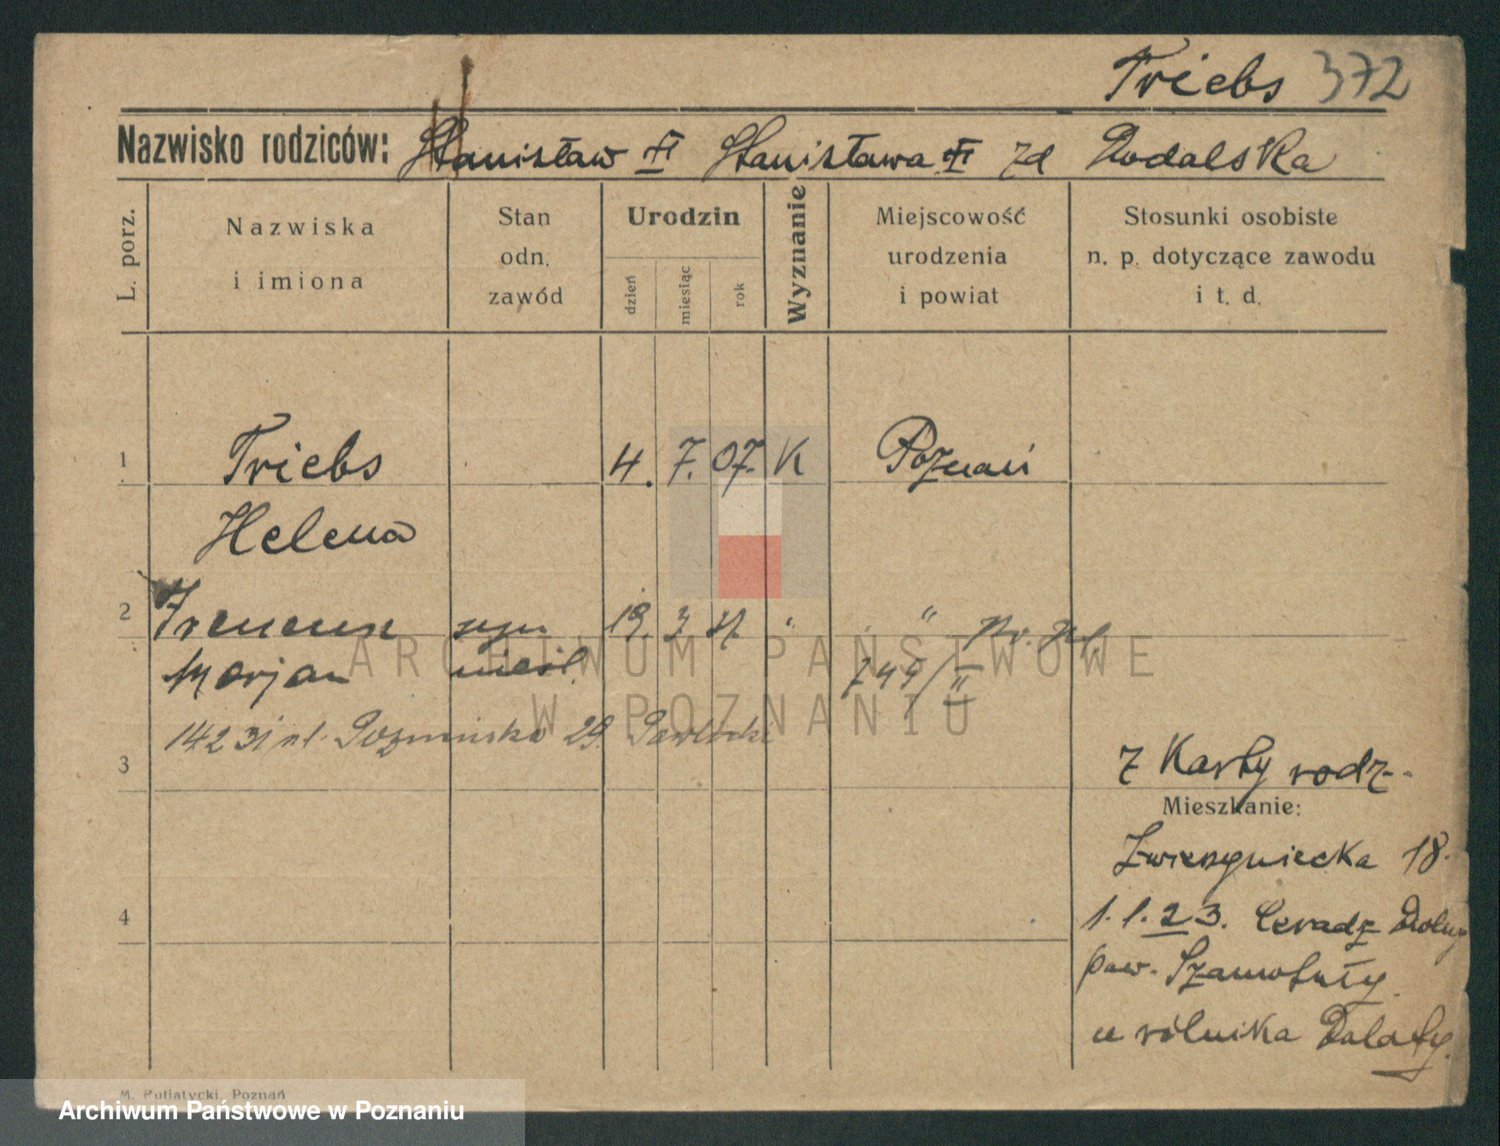 Triebs 372
Nazwisko rodziców: Stanisław Stanisława zd Rodalska
L. porz.
Nazwiska
i imiona
Stan
odn.
zawód
Urodzin
dzień
miesiąc
rok
Wyznanie
Miejscowość
urodzenia
i powiat
Stosunki osobiste
n. p. dotyczące zawodu
i t. d.
1 Triebs 4. 7. 07. K Poznań
Helena
2 Ireneusz syn 19. 3 " "
Marjan nieśl. 749/II
ARCHIWUM PAŃSTWOWE
W POZNANIU
14 2 31 29. Pawlicki
3
z Karty rodz.
Mieszkanie:
Zwierzyniecka 18.
4
1.1.23. Ceradz Dolny
pow. Szamotuły
u rolnika
M. Putiatycki, Poznań
Archiwum Państwowe w Poznaniu